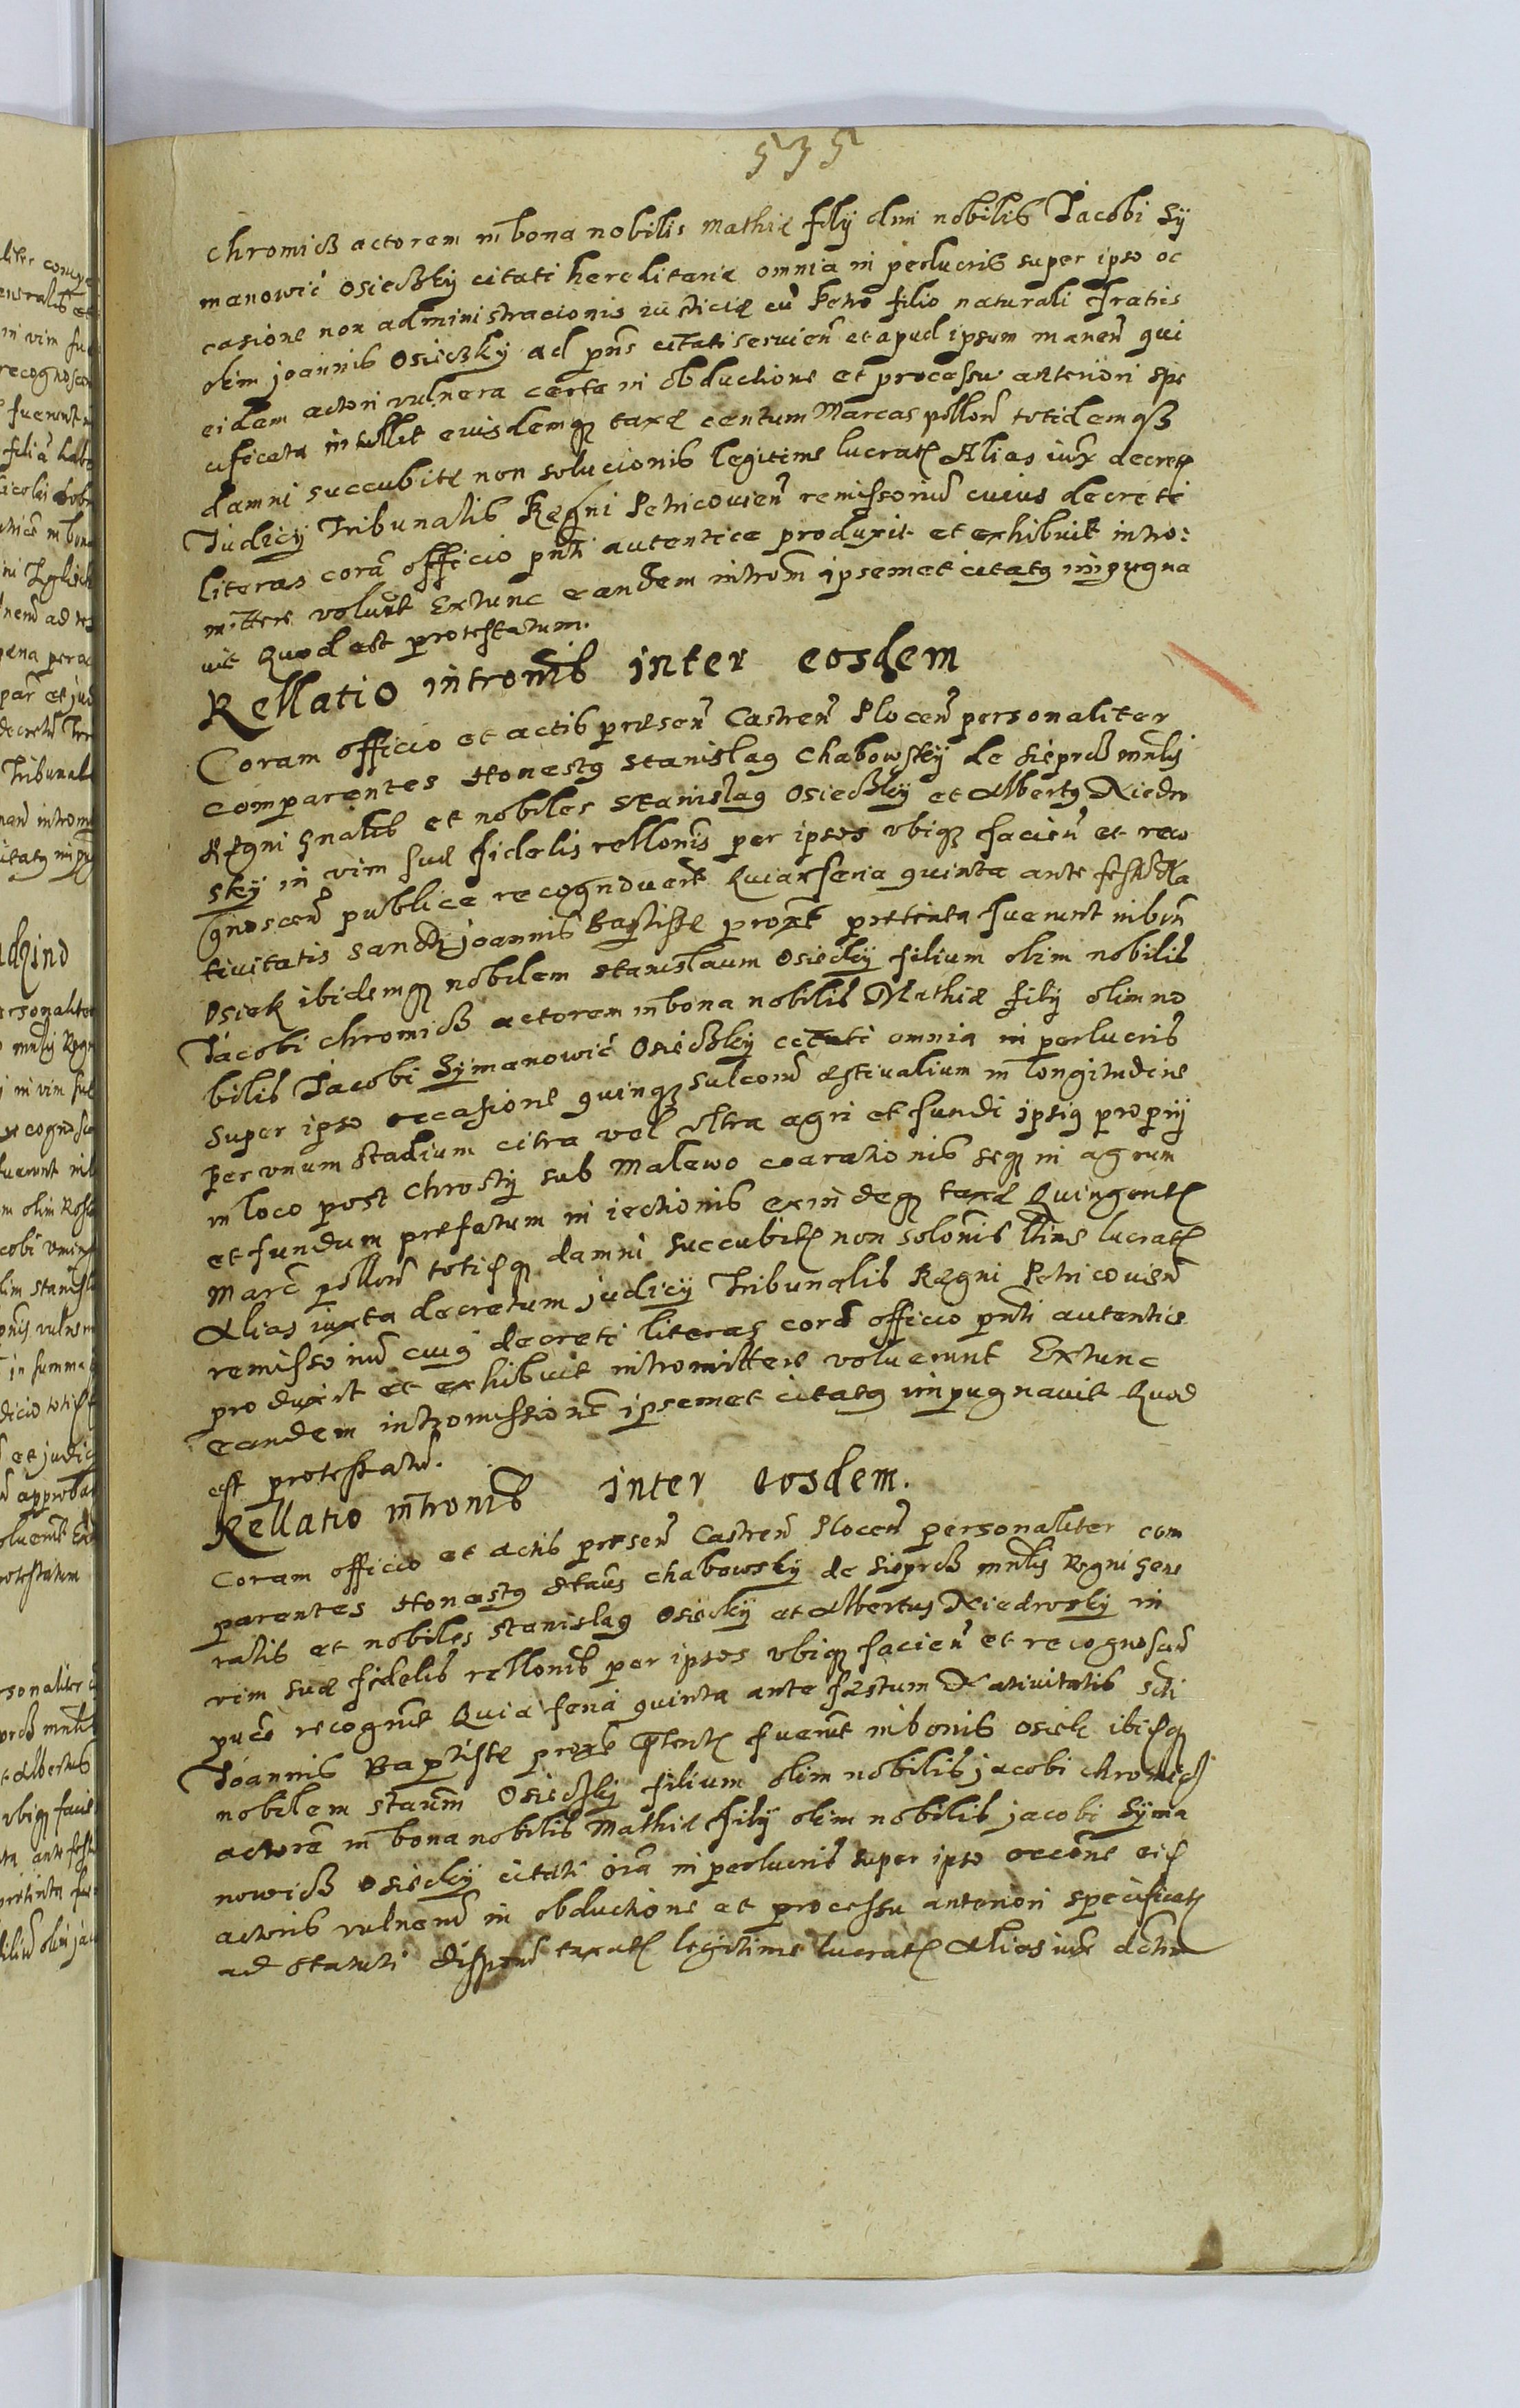 535
chromicz actorem in bona nobilis Mathiæ filij olim nobilis Jacobi Sÿ
manowic Osieczkÿ citati hereditariæ omnia in perlucris super ipso oc
casione non administracionis iusticiæ cũ Petro filio naturali fratris
olim Joannis Osieczkÿ ad pñs citati servieñ et apud ipsum maneñ qui
eidem actori vulnera certa in obductione et processu anteriori spe
cificata intullit eiusdemq taxæ centum Marcas pollon totidemqz
damni succubitæ non solucionis legitime lucrat Alias iux decret
Judicij Tribunalis Regni Petricovieñ remissoriũ cuius decreti
literas corã officio pnti autentice produxit et exhibuit intro:
mittere voluerũt Extunc eandem introm ipsemet citatq impugna
uit Quod est protestatum.
Rellatio intromis inter eosdem
Coram officio et actis præseñ Castreñ Ploceñ personaliter
comparentes Honestq Stanislaq Chabowskÿ de Sieprcz mnlis
Regni gnalis et nobiles Stanislaq Osieczkÿ et Albertq Niedro
skÿ in vim suæ fidelis rellonis per ipsos vbiq facieñ et reco
gnosceñ publice recognoverũt Quia feria quinta ante festũ Na
tivitatis sancti Joannis Baptistæ proxt preterita fuerunt in bon
Osiek ibidemq nobilem Stanislaum Osieckÿ filium olim nobilis
Jacobi chromicz actorem in bona nobilis Mathiæ filij olim no
bilis Jacobi Sÿmanowic Osieczkÿ citati omnia in perlucris
super ipso occasione quinq sulcorũ æstivalium in longitudine
per vnum stadium citra vel vltra agri et fundi ipsiq proprij
in loco post Chrostÿ sub Malewo coarationis seq in agrum
et fundum præfatum iniectionis exindeq taxæ Quingent
Marc pollon totiq damni succubit non solonis ltime lucrat
Alias iuxta decretum judicij Tribunalis Regni Petricovieñ
remissoriũ cuiq decreti literas corã officio pnti autentice
produxit et exhibuit intromittere voluerunt Extunc
eandem intromissionẽ ipsemet citatq impugnavit Quod
est protestatũ.
Rellatio intromis inter eosdem.
Coram officio et actis præseñ Castreñ Ploceñ personaliter com
parentes Honestq Staus Chabowskÿ de Sieprcz mnlis Regni gene
ralis et nobiles Stanislaq Osieckÿ et Albertus Niedroskÿ in
vim suæ fidelis rellonis per ipsos vbiq facieñ et recognosceñ
puce recognrũt Quia feria quinta ante festum Nativitatis scti
Joannis Baptistæ proxe preterit fuerũt in bonis Osiek ibiq
nobilem Staum Osieczkÿ filium olim nobilis Jacobi chromicz
actorẽ in bona nobilis Mathiæ filij olim nobilis Jacobi Sÿma
nowicz Osieckÿ citati oĩa in perlucris super ipso occõne eid
actoris vulnerũ in obductione et processu anteriori specificat
ad statuti taxat legitime lucrat Alias iux dctm